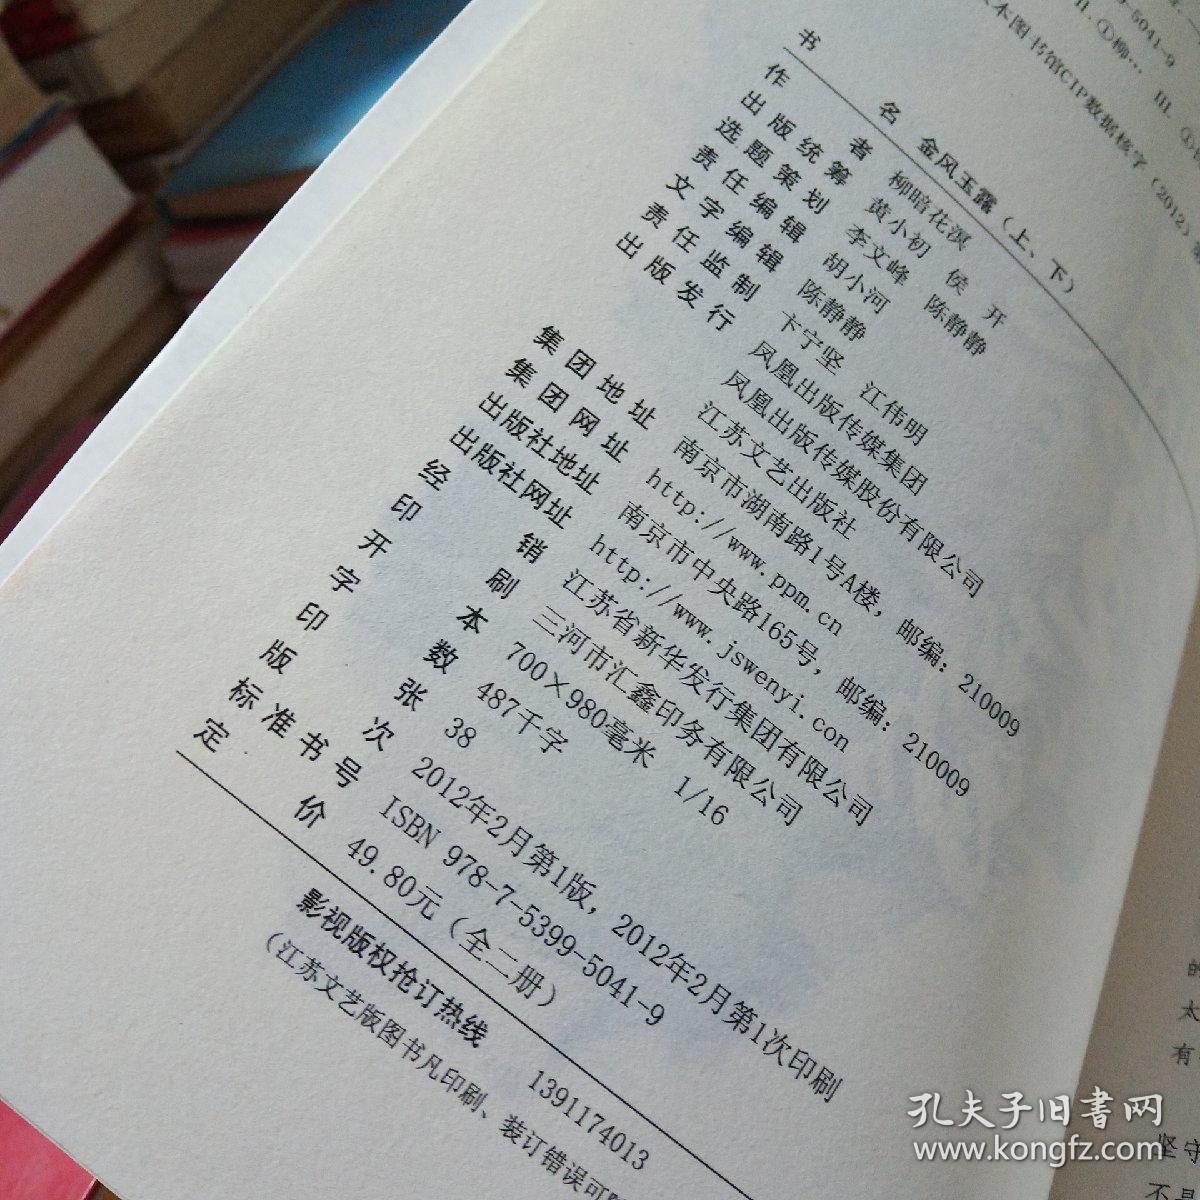 -5041-9
II. ①柳… III. ①
本图书馆CIP数据核字（2012）第
书 名 金风玉露（上、下）
作 者 柳暗花溟
出版统筹 黄小初 侯 开
选题策划 李文峰 陈静静
责任编辑 胡小河
文字编辑 陈静静
责任监制 卞宁坚 江伟明
出版发行 凤凰出版传媒集团
凤凰出版传媒股份有限公司
江苏文艺出版社
集团地址 南京市湖南路1号A楼，邮编：210009
集团网址 http://www.ppm.cn
出版社地址 南京市中央路165号，邮编：210009
出版社网址 http://www.jswenyi.con
经 销 江苏省新华发行集团有限公司
印 刷 三河市汇鑫印务有限公司
开 本 700×980毫米 1/16
字 数 487千字
印 张 38
版 次 2012年2月第1版，2012年2月第1次印刷
标准书号 ISBN 978-7-5399-5041-9
定 价 49.80元（全二册）
影视版权抢订热线 1391174013
（江苏文艺版图书凡印刷、装订错误可
的
太
有
坚守
不
孔夫子旧书网
www.kongfz.com